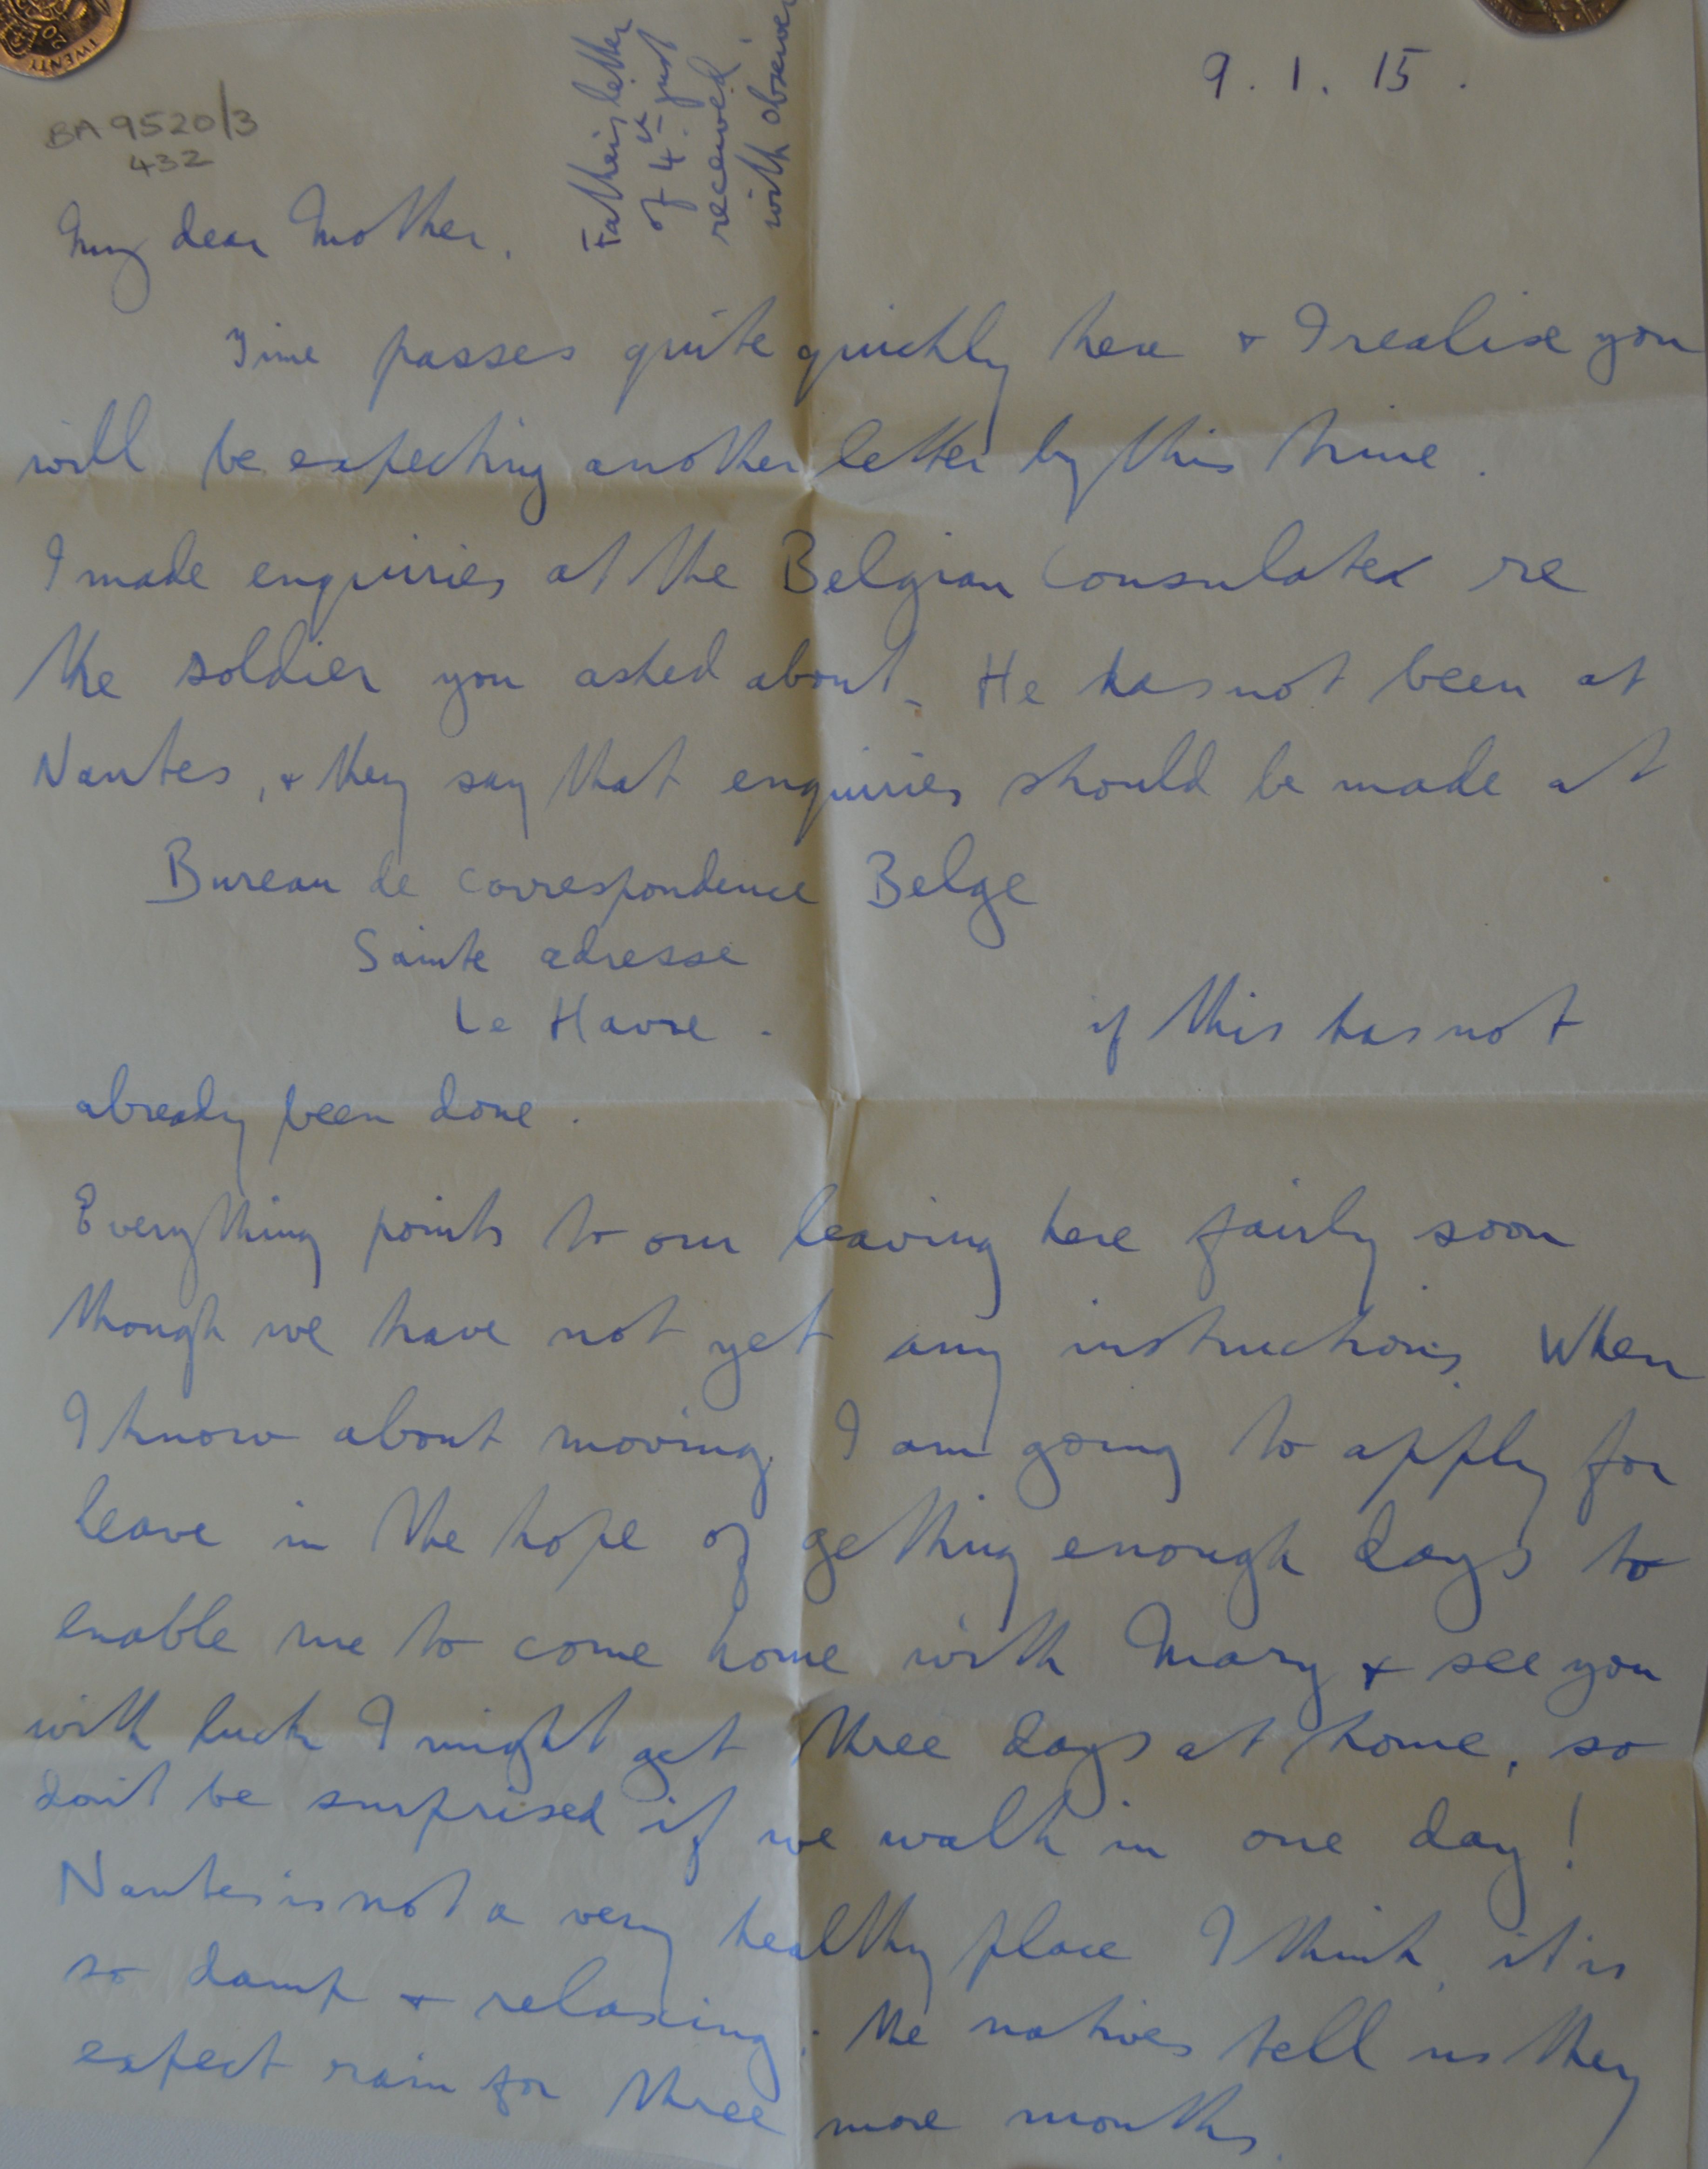 9.1.15.
BA 9520/3
432
Father's letter
of 4th just
received
with
My dear Mother.
Time passes quite quickly here & I realise you
will be expecting another letter by this time.
I made enquiries at the Belgian Consulate re
the soldier you asked about. He has not been at
Nantes, & they say that enquiries should be made at
Bureau de Correspondence Belge
Sainte adresse
Le Havre. if this has not
already been done.
Everything points to our leaving here fairly soon
though we have not yet any instructions. When
I know about moving, I am going to apply for
leave in the hope of getting enough days to
enable me to come home with Mary & see you
with luck I might get three days at home, so
don't be surprised if we walk in one day!
Nantes is not a very healthy place I think, it is
so damp & relaxing. The natives tell us they
expect rain for three more months.
TWENTY